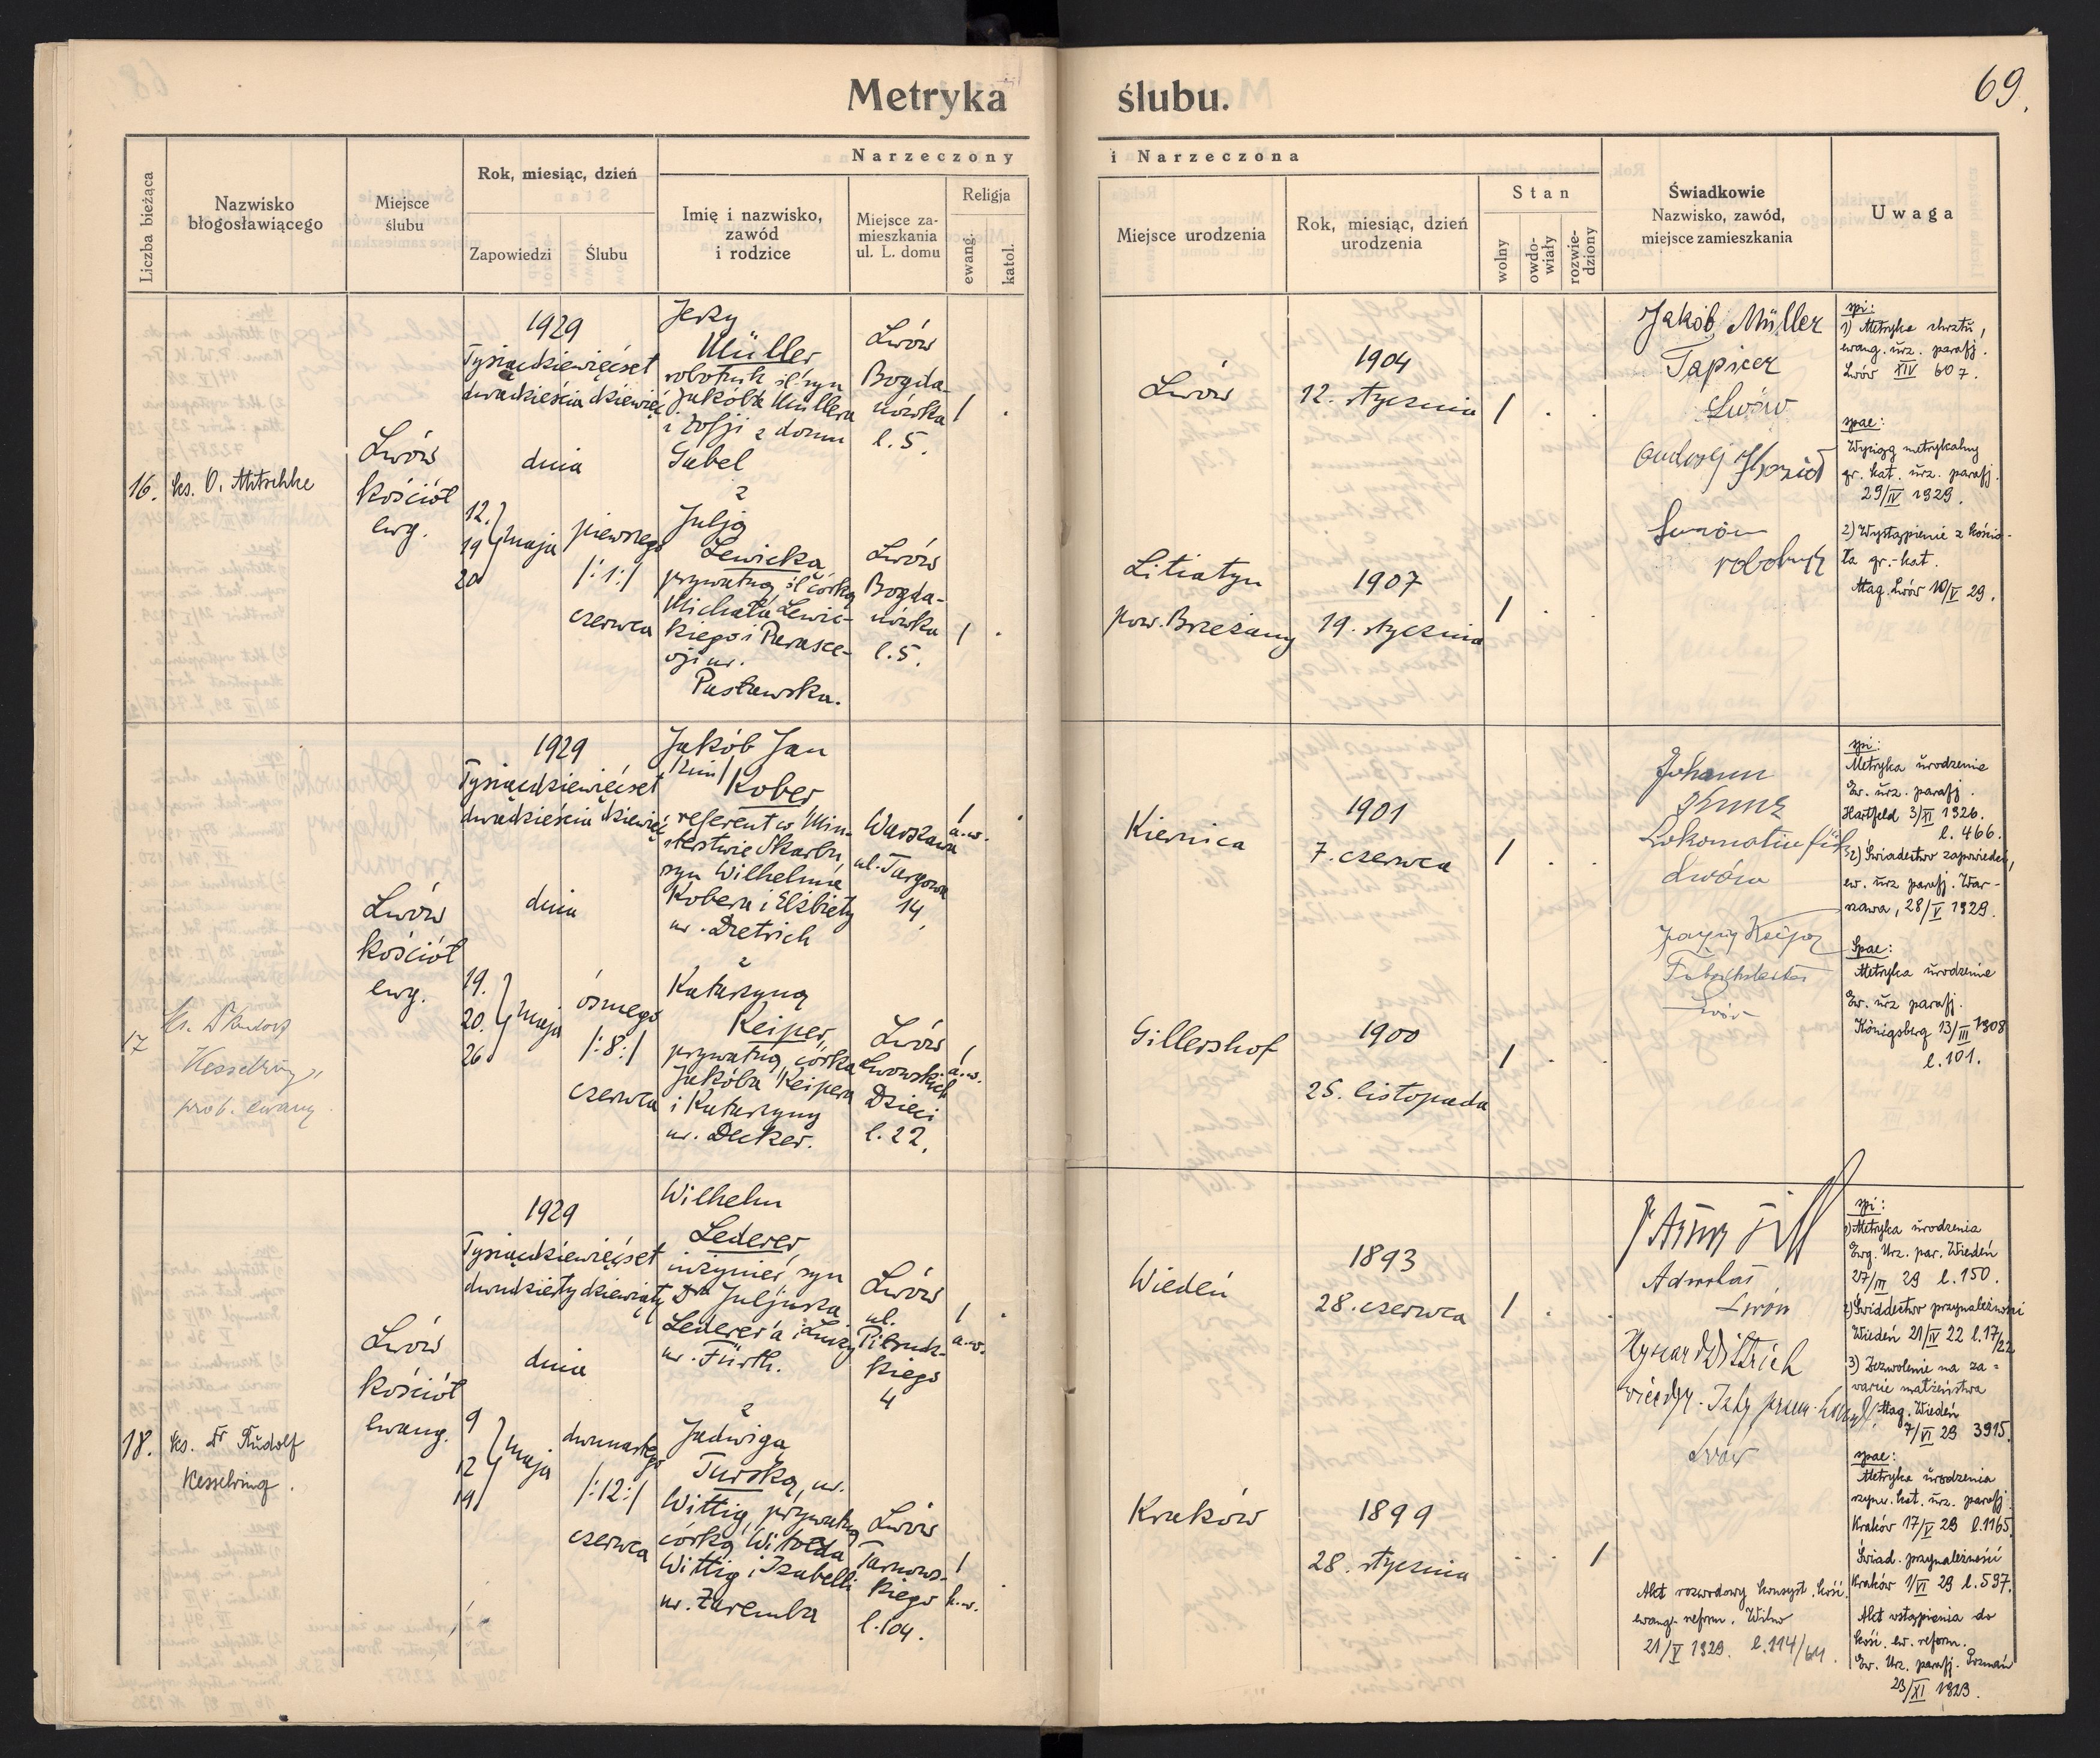 69.
Metryka ślubu.
Liczba bieżąca
Nazwisko
błogosławiącego
Miejsce
ślubu
Rok, miesiąc, dzień
Zapowiedzi
Ślubu
Narzeczony
Imię i nazwisko,
zawód
i rodzice
Miejsce za-
mieszkania
ul. L. domu
Religja
ewang.
katol.
i Narzeczona
Miejsce urodzenia
Rok, miesiąc, dzień
urodzenia
Stan
wolny
owdo-
wiały
rozwie-
dziony
Świadkowie
Nazwisko, zawód,
miejsce zamieszkania
Uwaga
16.
ks. O. Mitschke
Lwów
kościół
ewg.
1929
Tysiącdziewięćset
dwadzieścia dziewięć
dnia
12.
19
20
maja
pierwszego
/:1:/
czerwca
Jerzy
Müller
robotnik śl. syn
Jakóba Müllera
i Zofji z domu
Gabel
z
Julją
Lewicką,
prywatną, śl. córką
Michała Lewic-
kiego i Parasce-
wji ur.
Pasławska.
Lwów
Bogda-
nówka
l. 5.
Lwów
Bogda-
nówka
l. 5.
1 .
1 .
Lwów
Litiatyn
pow. Brzeżany
1904
12. stycznia
1907
19. stycznia
1 . .
1 . .
Jakób Müller
Tapicer
Lwów
Lwów
robotnik
spi:
1) Metryka chrztu,
ewang. urz. parafj.
Lwów XIV 607.
spae:
Wyciąg metrykalny
gr. kat. urz. parafj.
29/IV 1929.
2) Wystąpienie z kościo-
ła gr.-kat.
Mag. Lwów 10/V 29.
17
Ks. Dr Rudolf
Kesselring,
prob. ewang.
Lwów
kościół
ewg.
1929
Tysiącdziewięćset
dwadzieścia dziewięć
dnia
19.
20.
26
maja
ósmego
/:8:/
czerwca
Jakób Jan
/2im/
Kober
referent w Min-
sterstwie Skarbu,
syn Wilhelma
Kobera i Elżbiety
ur. Dietrich
z
Katarzyną
Keiper,
prywatną, córką
Jakóba Keipera
i Katarzyny
ur. Decker.
Warszawa
ul. Targowa
14.
Lwów
Lwowskich
Dzieci
l. 22.
1
a.w.
1
a.w.
Kiernica
Gillershof
1901
7. czerwca
1900
25. listopada
1 . .
1 . .
Johann
Kunz
Lokomotivfüh
Lwów
Keiper
Lwów
spi:
Metryka urodzenia
Ew. urz. parafj.
Hartfeld 3/XI 1926.
l. 466.
2) Świadectwo zapowiedzi,
ew. urz parafj. War-
szawa, 28/V 1929.
Spae:
Metryka urodzenia
Ew. urz parafj.
Königsberg 13/III 1908
l. 101.
18.
ks. Dr Rudolf
Kesselring.
Lwów
kościół
ewang.
1929
Tysiącdziewięćset
dwudziesty dziewiąty
dnia
9
12
19
maja
dwunastego
/:12:/
czerwca
Wilhelm
Lederer,
inżynier, syn
Dra Juljusza
Lederer'a i Luizy
ur. Fürth.
z
Jadwigą
Turską, ur.
Wittig, prywatną
córką Witolda
Wittig i Izabelli
ur. Zaremba
Lwów
ul.
Piłsud-
kiego
4
Lwów
Tarnows-
kiego
l. 104.
1
a.w.
1
h.w.
Wiedeń
Kraków
1893
28. czerwca
1899
28. stycznia
1 . .
. . 1
Adwokat
Lwów
Ryszard Dittrich
wicedyr. Izby przem.
Lwów
Akt rozwodowy konsyst. kość.
ewang. reform. Wilno
21/V 1929. l. 114/64.
spi:
1) Metryka urodzenia
Ewg. Urz. par. Wiedeń
27/III 29 l. 150.
2) Świadectwo przynależności
Wiedeń 21/IV 22 l. 17/22
3) Zezwolenie na za-
warcie małżeństwa
Mag. Wiedeń
7/VI 29 3915.
spae:
Metryka urodzenia
rzym. kat. urz. parafj.
Kraków 17/V 29 l. 1165
Świad. przynależności
Kraków 1/VI 29 l. 597.
Akt wstąpienia do
kość. ew. reform.
Ew. Urz. parafj. Poznań
23/XI 1923.